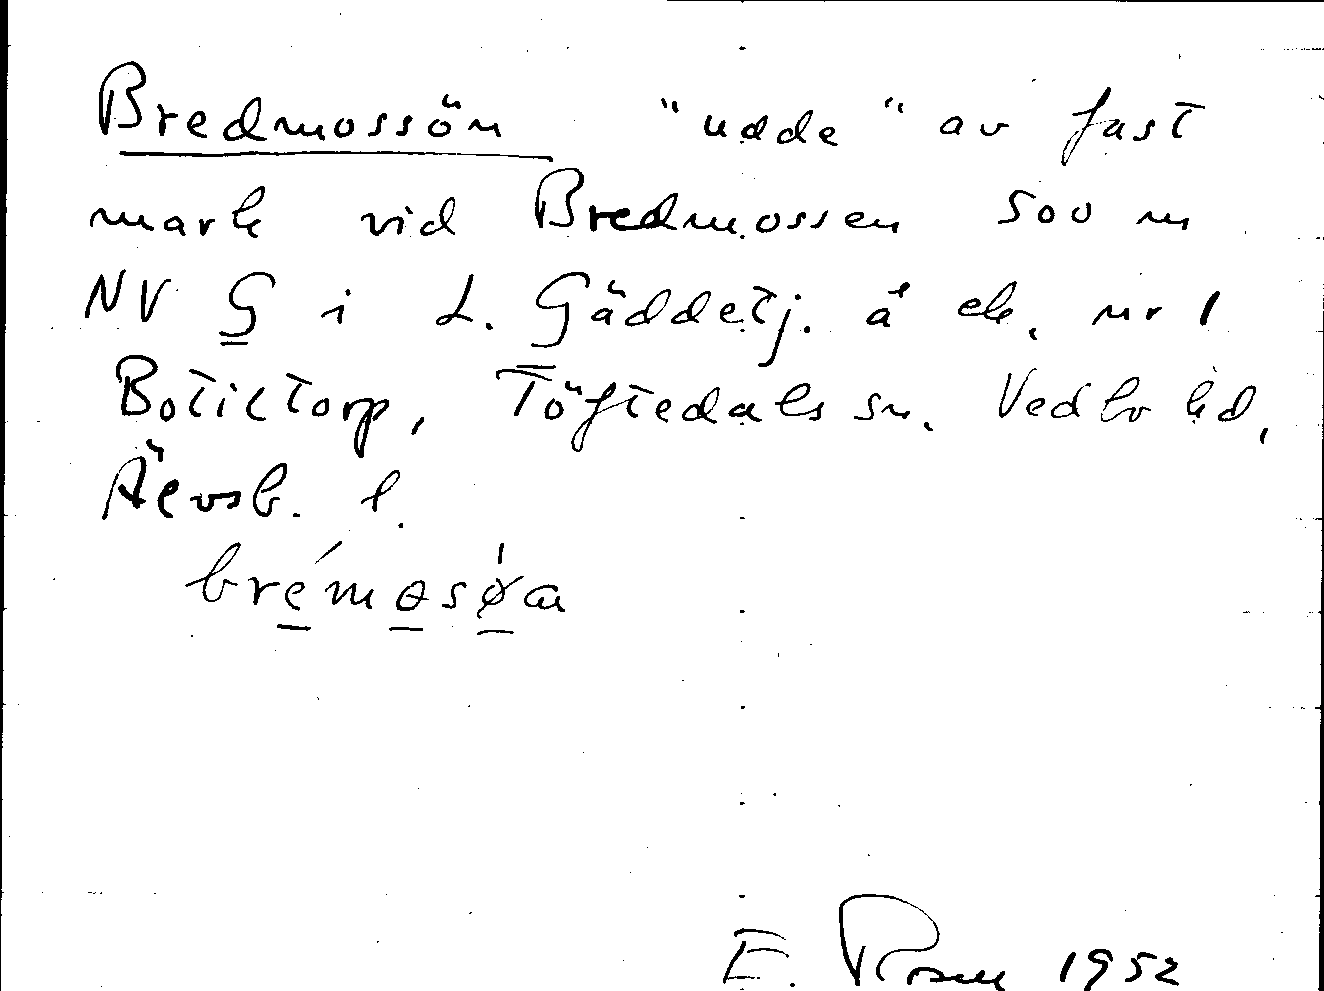 Bredmossön "udde" av fast
mark vid Bredmossen 500 m
NV G i L. Gäddetj. å ek. nr 1
Botiltorp, Töftedals sn. Vedbo hd,
Älvsb. l.
brémosøa
E. Rosén 1952